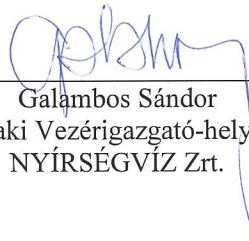 Galambos Sándor
aki Vezérigazgató-hely
NYÍRSÉGVÍZ Zrt.